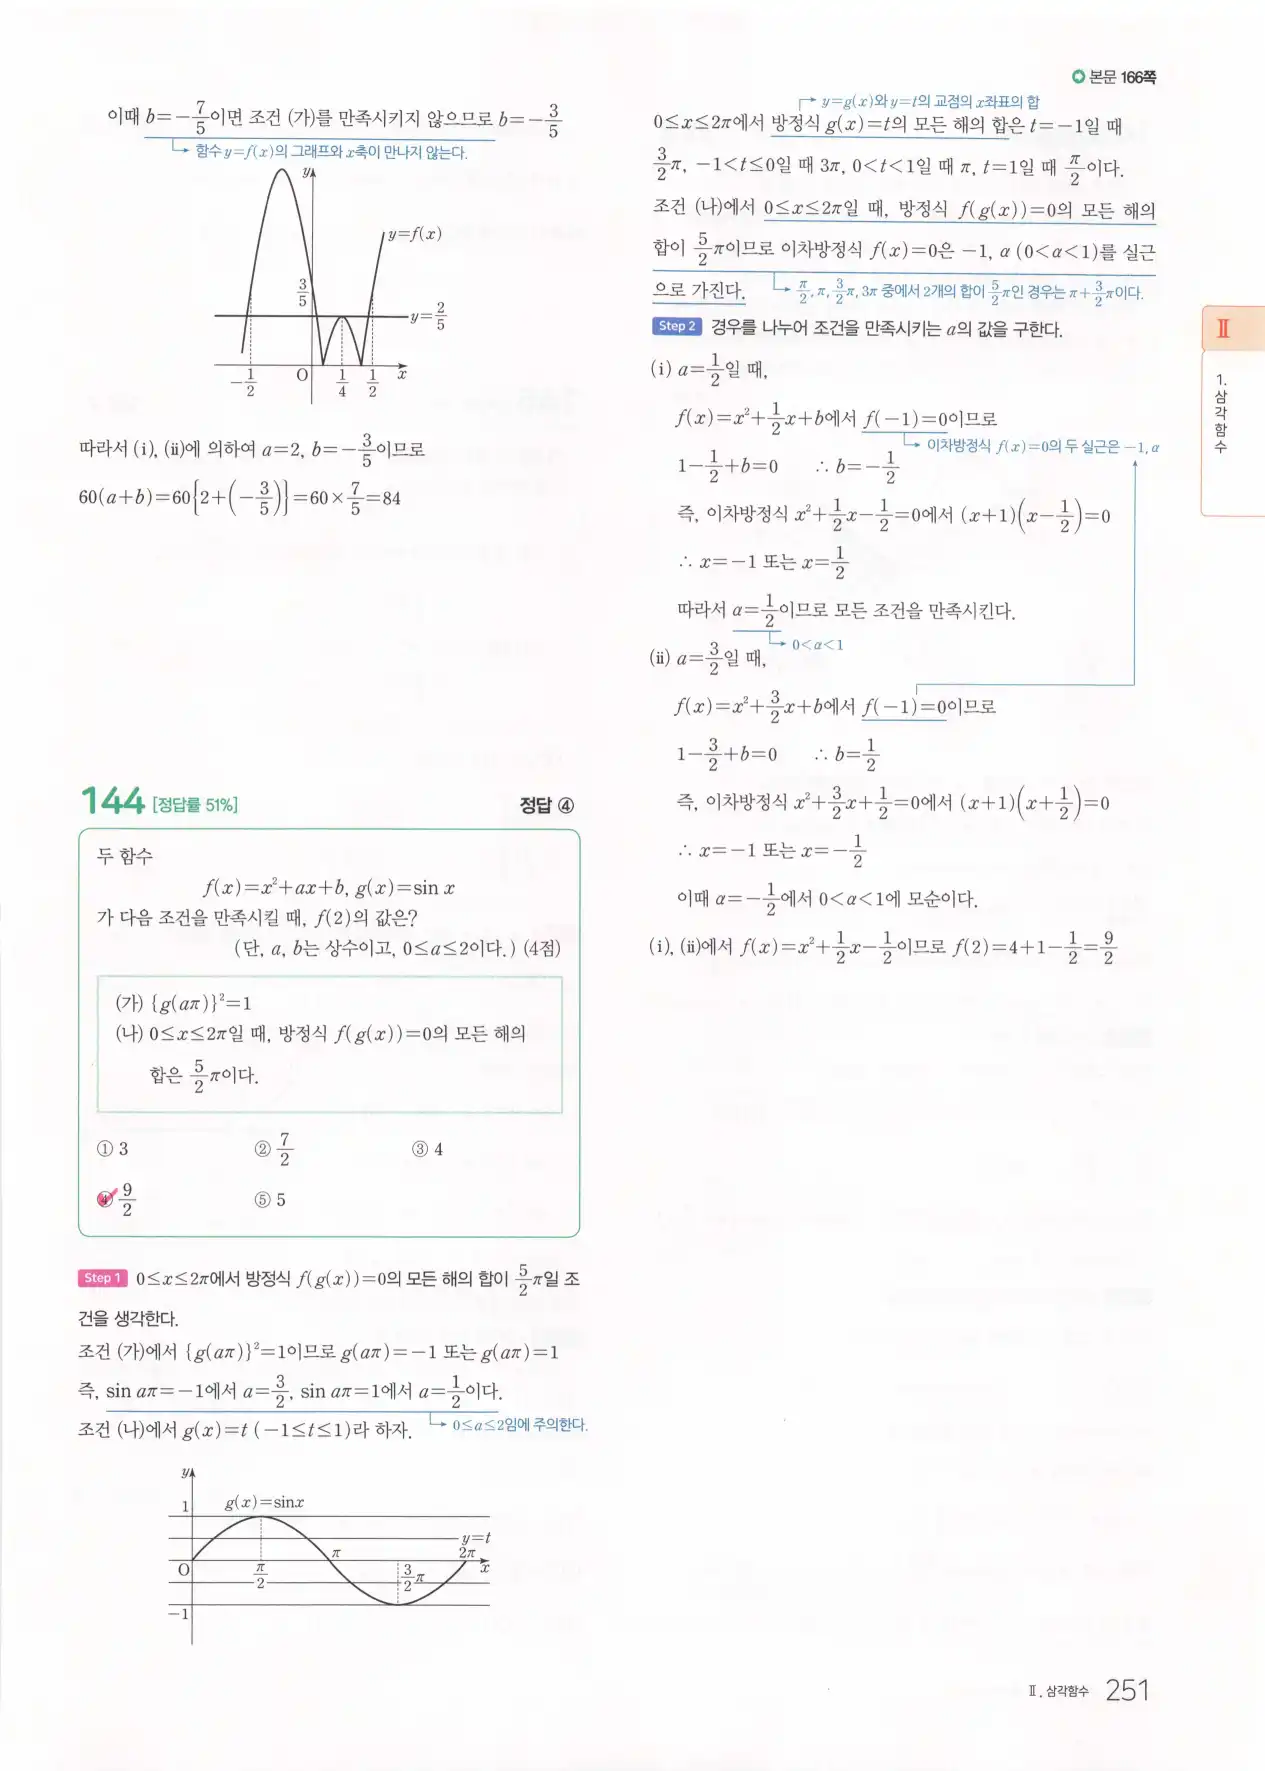 본문 166쪽
이때 b=-7/5이면 조건 (가)를 만족시키지 않으므로 b=-3/5
함수 y=f(x)의 그래프와 x축이 만나지 않는다.
y
y=f(x)
3/5
y=2/5
-1/2 O 1/4 1/2 x
따라서 (ⅰ), (ⅱ)에 의하여 a=2, b=-3/5이므로
60(a+b)=60{2+(-3/5)}=60×7/5=84
144 [정답률 51%] 정답 ④
두 함수
f(x)=x²+ax+b, g(x)=sin x
가 다음 조건을 만족시킬 때, f(2)의 값은?
(단, a, b는 상수이고, 0≤a≤2이다.) (4점)
(가) {g(aπ)}²=1
(나) 0≤x≤2π일 때, 방정식 f(g(x))=0의 모든 해의
합은 5/2π이다.
① 3 ② 7/2 ③ 4
④ 9/2 ⑤ 5
Step 1 0≤x≤2π에서 방정식 f(g(x))=0의 모든 해의 합이 5/2π일 조
건을 생각한다.
조건 (가)에서 {g(aπ)}²=1이므로 g(aπ)=-1 또는 g(aπ)=1
즉, sin aπ=-1에서 a=3/2, sin aπ=1에서 a=1/2이다.
조건 (나)에서 g(x)=t (-1≤t≤1)라 하자.
0≤a≤2임에 주의한다.
y
1 g(x)=sinx
y=t
O π/2 π 3/2π 2π x
-1
y=g(x)와 y=t의 교점의 x좌표의 합
0≤x≤2π에서 방정식 g(x)=t의 모든 해의 합은 t=-1일 때
3/2π, -1<t≤0일 때 3π, 0<t<1일 때 π, t=1일 때 π/2이다.
조건 (나)에서 0≤x≤2π일 때, 방정식 f(g(x))=0의 모든 해의
합이 5/2π이므로 이차방정식 f(x)=0은 -1, α (0<α<1)를 실근
으로 가진다.
π/2, π, 3/2π, 3π 중에서 2개의 합이 5/2π인 경우는 π+3/2π이다.
Step 2 경우를 나누어 조건을 만족시키는 a의 값을 구한다.
(ⅰ) a=1/2일 때,
f(x)=x²+1/2x+b에서 f(-1)=0이므로
이차방정식 f(x)=0의 두 실근은 -1, α
1-1/2+b=0 ∴ b=-1/2
즉, 이차방정식 x²+1/2x-1/2=0에서 (x+1)(x-1/2)=0
∴ x=-1 또는 x=1/2
따라서 α=1/2이므로 모든 조건을 만족시킨다.
0<α<1
(ⅱ) a=3/2일 때,
f(x)=x²+3/2x+b에서 f(-1)=0이므로
1-3/2+b=0 ∴ b=1/2
즉, 이차방정식 x²+3/2x+1/2=0에서 (x+1)(x+1/2)=0
∴ x=-1 또는 x=-1/2
이때 α=-1/2에서 0<α<1에 모순이다.
(ⅰ), (ⅱ)에서 f(x)=x²+1/2x-1/2이므로 f(2)=4+1-1/2=9/2
Ⅱ
1. 삼각함수
Ⅱ. 삼각함수 251